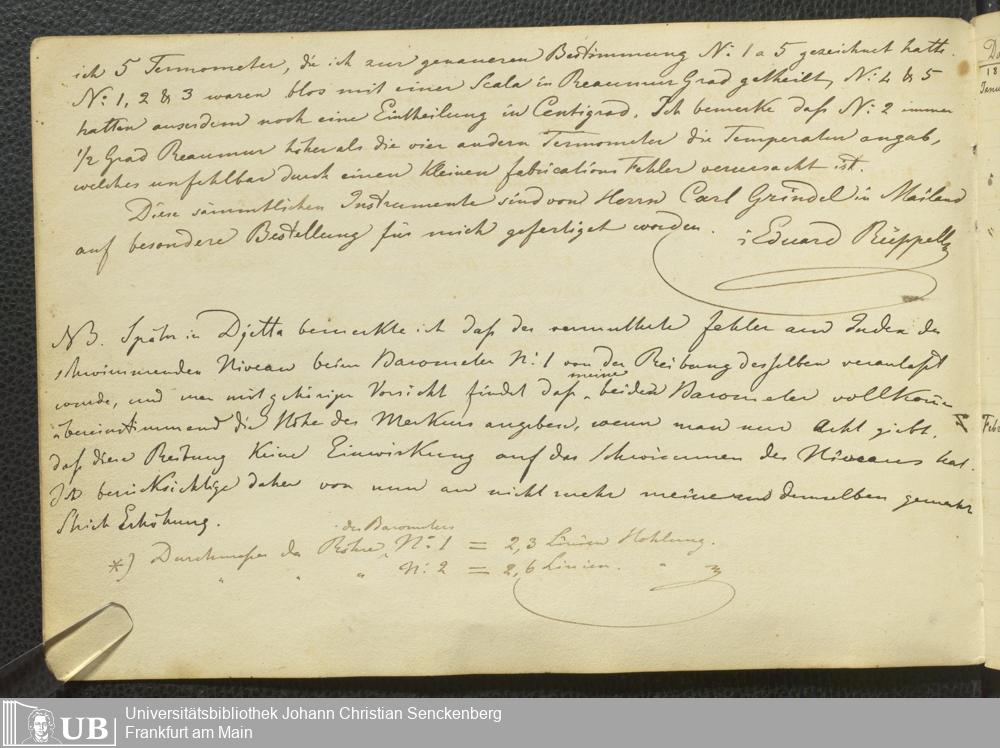 ich 5 Termometer, die ich zur genaueren Bestimmung N: 1 a 5 gezeichnet hatte.
N: 1, 2 & 3 waren blos mit einer Scala in Reaumur Grad getheilt, N: 4 & 5
hatten auserdem noch eine Eintheilung in Centigrad. Ich bemerke daß N: 2 immer
1/2 Grad Reaumur höher als die vier andern Termometer die Temperatur angab,
welches unfehlbar durch einen kleinen fabrications Fehler verursacht ist.
Diese sämmtlichen Instrumente sind von Herrn Carl Grindel in Mailand
auf besondere Bestellung für mich gefertiget worden. Eduard Rüppell
NB. Später in Djetta bemerkte ich daß der vermuthete Fehler am Index des
schwimmenden Niveau beim Barometer N: 1 von der Reibung desselben veranlaßt
wurde, und man mit gehöriger Vorsicht findet daß meine beiden Barometer vollkom̄
übereinstimmend die Höhe des Merkurs angeben, wenn man nur Acht giebt,
daß diese Reibung keine Einwirkung auf das Schwimmen des Niveaus hat.
Ich berücksichtige daher von nun an nicht mehr meine demselben gemachte
Strich Erhöhung.
*) Durchmesser der Röhre des Barometers N: 1 = 2,3 Linien Höhlung.
" " " N: 2 = 2,6 Linien. "
18
Febr
UB
Universitätsbibliothek Johann Christian Senckenberg
Frankfurt am Main